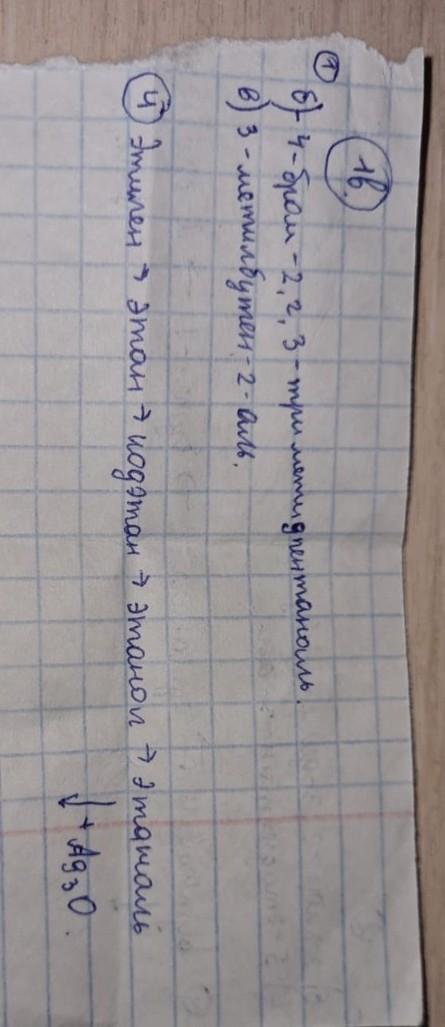 1в.
① б) 4-бром-2,2,3-триметилпентаналь.
в) 3-метилбутен-2-аль.
④ Этилен → этан → иодэтан → этанол → этаналь
↓ + Ag₃O.